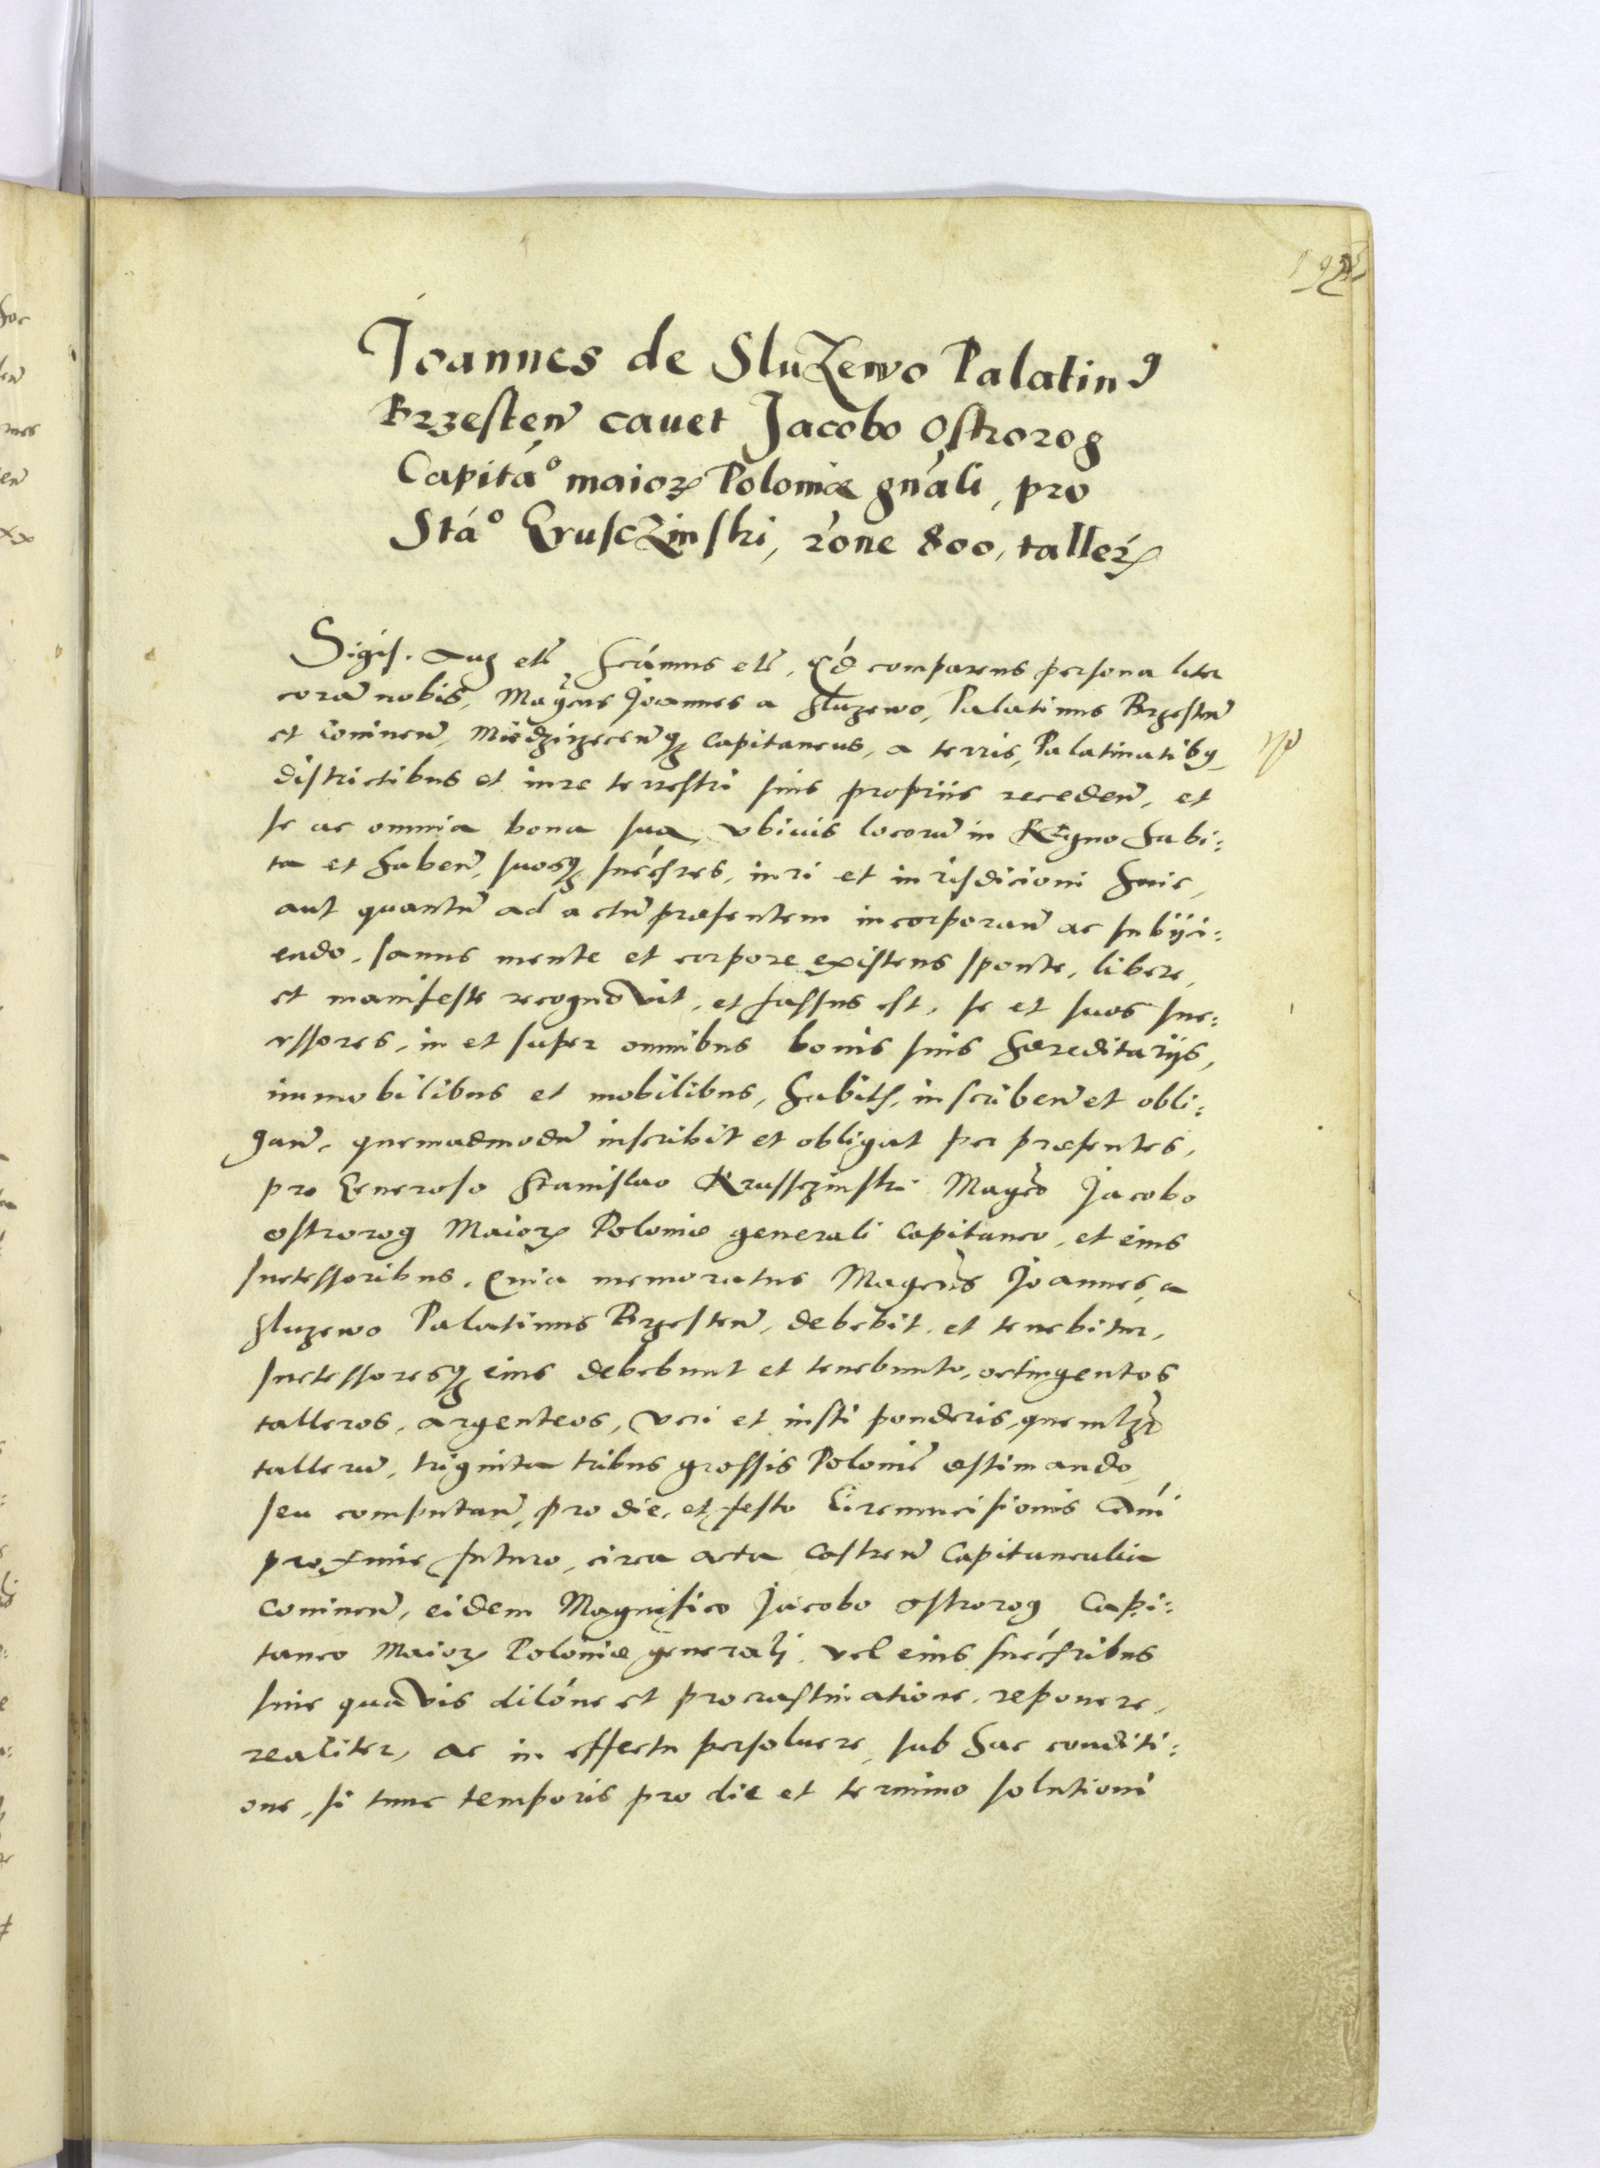 Joannes de SluZewo Palatin9
Brzesten̄ cavet Jacobo Ostrorog
Capitá° maioꝝ Poloniæ gnáli, pro
Stá° CrusczZinski, róne 800, talleꝝ
Sigis. Aug etc̄ scámus etc̄, Qd comparens persona liter
corā nobis, Magcus Joannes a Sluzewo, Palatinus Brzesten̄
et Coninen̄, Miedzirzecen̄qꝫ Capitaneus, a terris, Palatinatibꝯ,
districtibus et iure terrestri suis propriis recedeñ, et
se ac omnia bona sua, vbiuis locorū in Regno habi:
ta et habeñ, suosqꝫ succr̄es, iuri et iurisdicioni huic,
aut quantū ad actū præsentem incorporan̄ ac subiici:
endo, sanus mente et corpore existens sponte, libere,
et manifeste recognovit, et fassus est, se et suos suc:
cessores, in et super omnibus bonis suis hæreditariis,
immobilibus et mobilibus, habitis, inscriben̄ et obli:
gan̄, quemadmodū inscribit et obligat per præsentes,
pro Generoso Stanislao Krussczinski Magco Jacobo
ostrorog Maioꝝ Poloniæ generali Capitaneo, et eius
successoribus. Quia memoratus Magcus Joannes, a
Sluzewo Palatinus Brzesten̄, debebit, et tenebitur,
successoresqꝫ eius debebunt et tenebuntr, octingentos
talleros, argenteos, veri et iusti ponderis, quemlꝫt
tallerū, triginta tribus grossis Polonic̄ æstimando,
seu computan̄, pro die, et festo Circumcisionis Dn̄i
proxime futuro, circa acta Castren̄ Capitanealia
Coninen̄, eidem Magnifico Jacobo ostrorog Capi:
taneo Maioꝝ Poloniæ generali, vel eius succr̄ibus
sine quavis dilóne et procrastinatione, reponere,
realiter, ac in effectu persoluere, sub hac conditi:
one, si tunc temporis pro die et termino solutioni